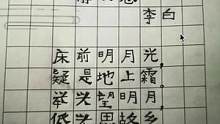 李白
床前明月光,
疑是地上霜。
举头望明月,
低头思故乡